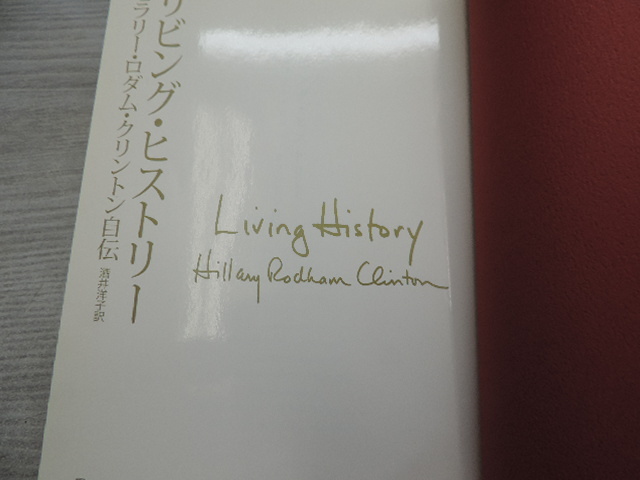 リビング・ヒストリー
ラリー・ロダム・クリントン自伝
酒井洋子訳
Living History
Hillary Rodham Clinton